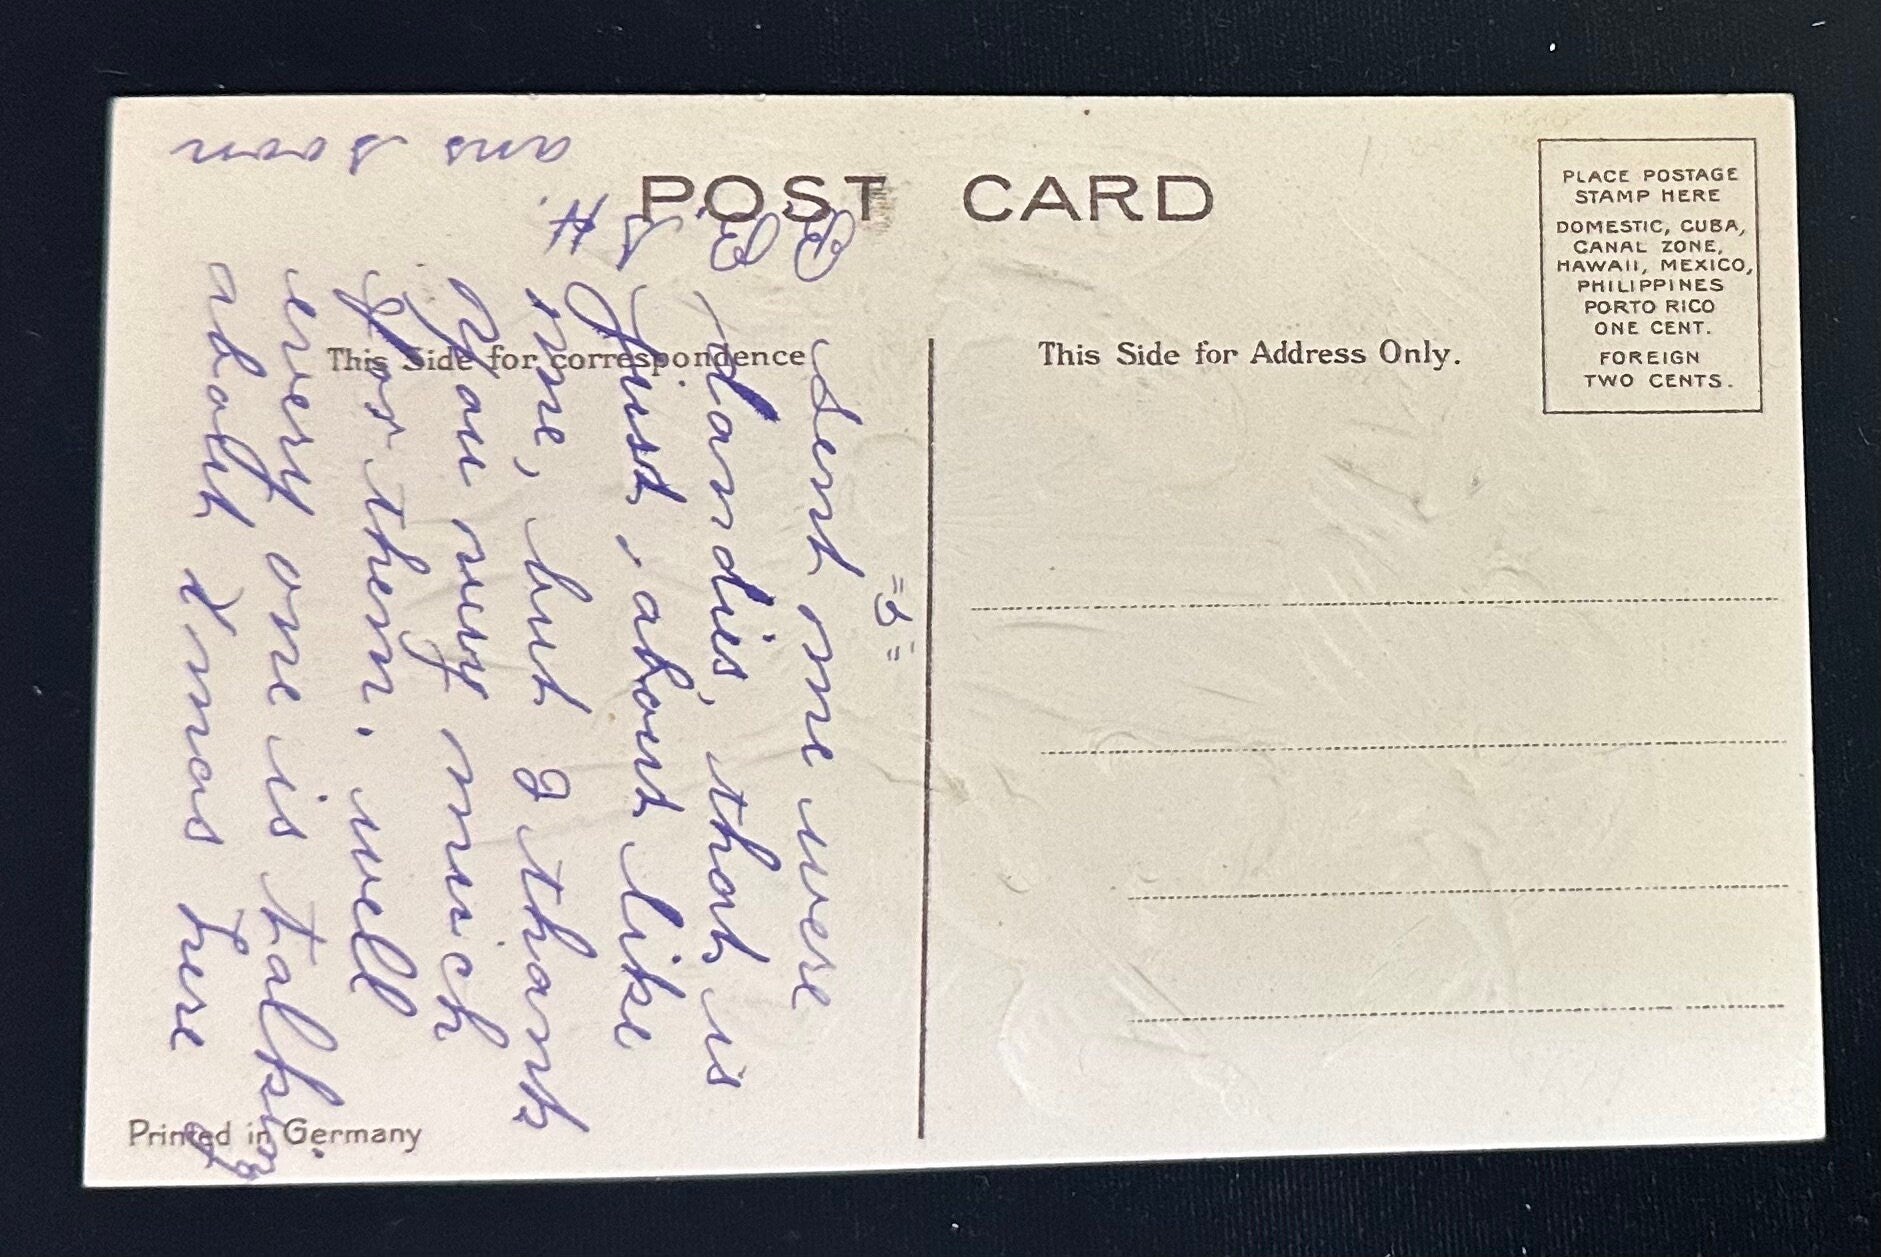 POST CARD
PLACE POSTAGE
STAMP HERE
DOMESTIC, CUBA,
CANAL ZONE,
HAWAII, MEXICO,
PHILIPPINES
PORTO RICO
ONE CENT.
FOREIGN
TWO CENTS.
This Side for correspondence
This Side for Address Only.
Printed in Germany
Sent me were
dandies, that is
just about like
me, but I thank
you very much
for them. well
every one is talking
about Xmas here
ans soon
B. B. S. H.